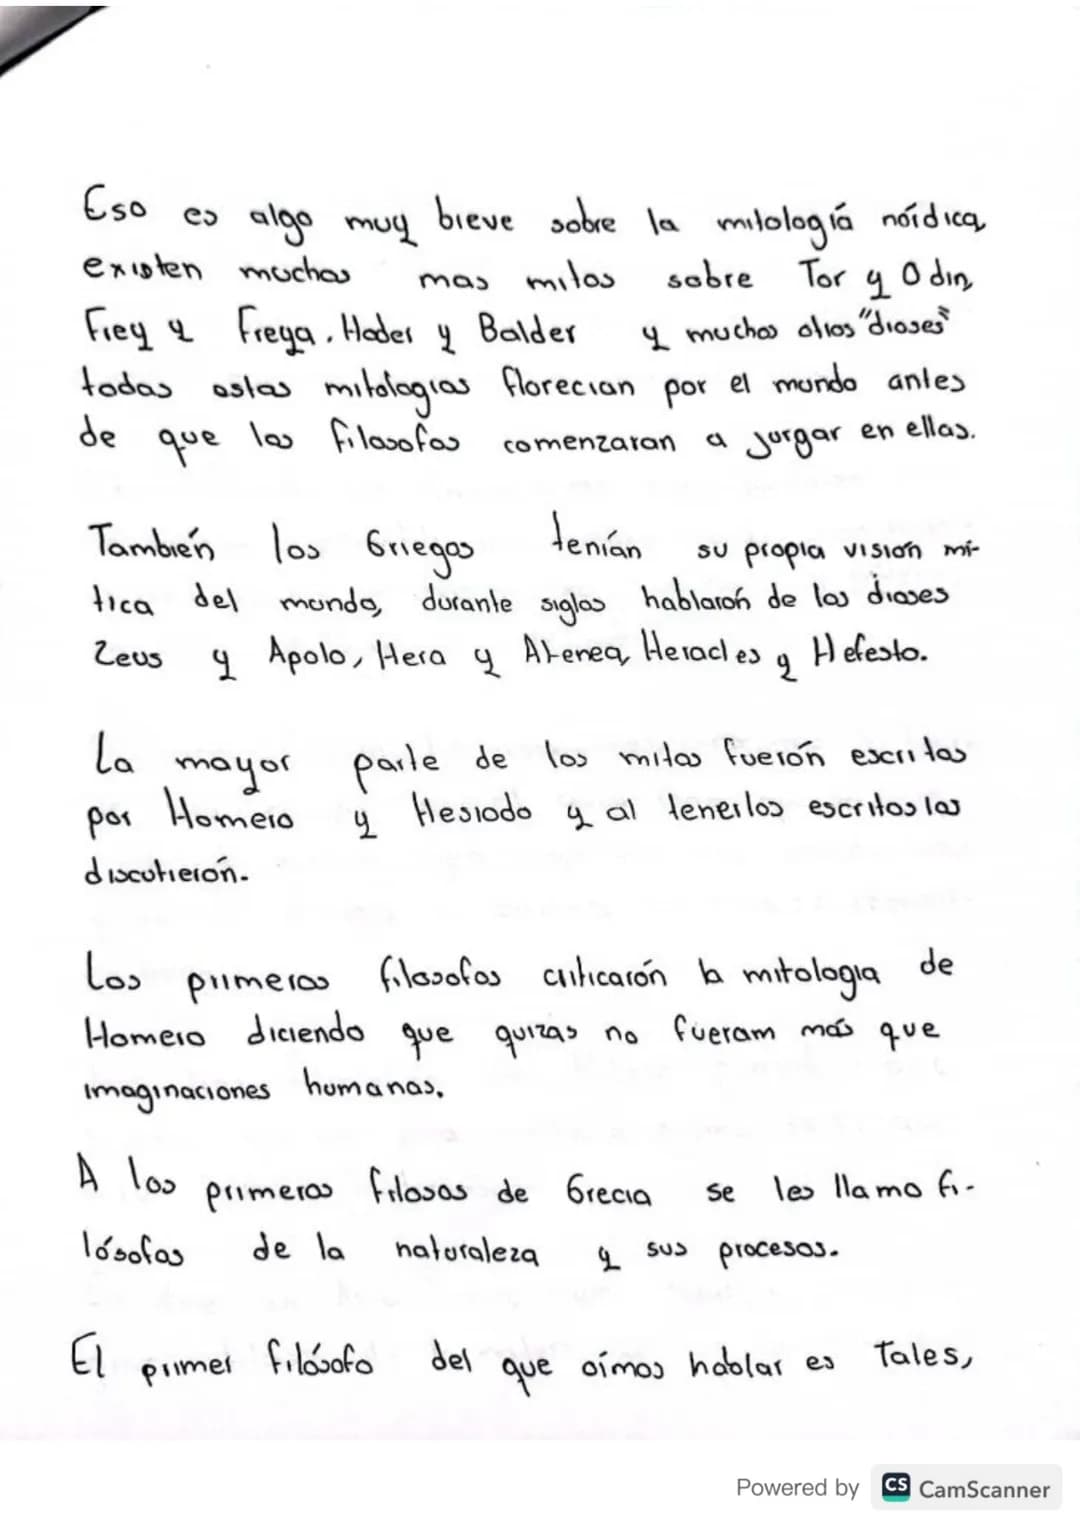 Eso es algo muy breve sobre la mitología nórdica,
existen muchos mas mitos sobre Tor y Odin,
Frey y Freya, Hoder y Balder y muchos otros "dioses"
todas estas mitologias florecian por el mundo antes
de que los filosofos comenzaran a jurgar en ellas.
También los Griegos tenían su propia visión mí-
tica del mundo, durante siglos hablarón de los dioses
Zeus y Apolo, Hera y Atenea, Heracles y Hefesto.
La mayor parte de los mitos fuerón escritos
por Homero y Hesiodo y al tenerlos escritos los
discutierón.
Los primeros filosofos criticarón la mitologia de
Homero diciendo que quizas no fueram más que
imaginaciones humanas.
A los primeros filosos de Grecia se les llamo fi-
lósofos de la naturaleza y sus procesos.
El primer filósofo del que oímos hablar es Tales,
Powered by CS CamScanner